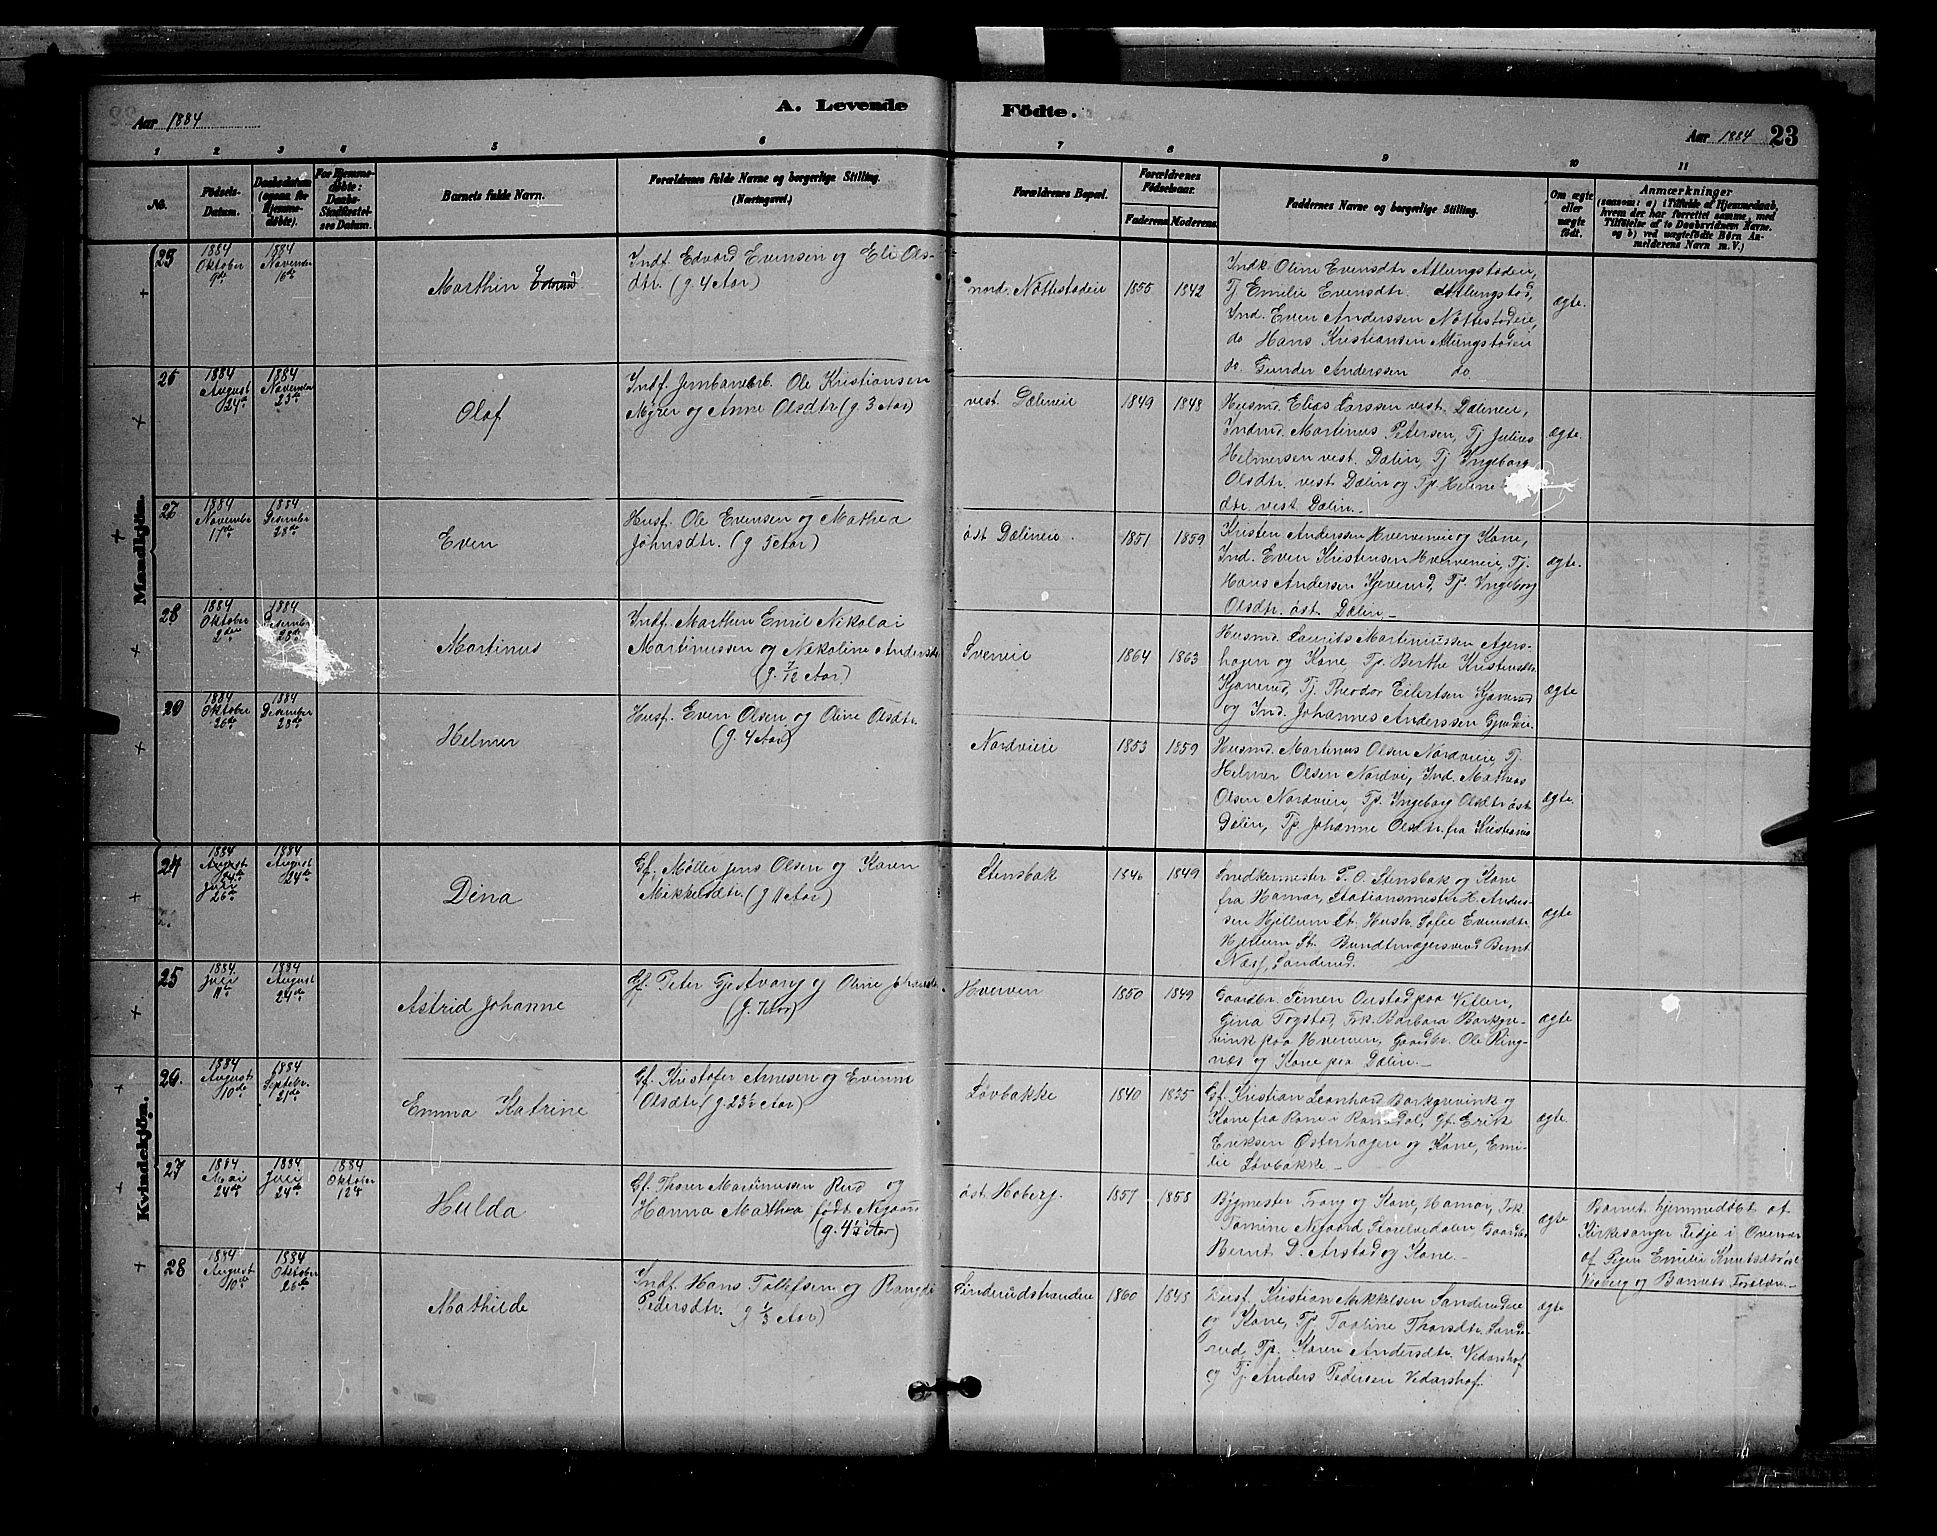 A. Levende Födte.
Aar 1884
Aar 1884 23
1 2 3 4 5 6 7 8 9 10 11
No.
Födsels-Datum.
Daabsdatum (ogsaa for Hjemmedöbte).
For Hjemmedöbte: Daabs-Stadfæstelses Datum.
Barnets fulde Navn.
Forældrenes fulde Navne og borgerlige Stilling. (Næringsvei.)
Forældrenes Bopæl.
Forældrenes Fødselsaar.
Faderens Moderens
Faddernes Navne og borgerlige Stilling.
Om ægte eller uægte født.
Anmærkninger
(saasom: a) i Tilfælde af Hjemmedaab, hvem der har forrettet samme, med Tilföielse af to Daabsvidners Navne. og b) ved uægtefödte Börn Anmelderens Navn m. V.)
Mandkjön.
25
1884 Oktober 9de
1884 November 16de
Marthin Edvard
Indf. Edvard Evensen og Eli Ols-
dtr. (g. 4 Aar)
nord. Nøttestadeie
1855 1842
Indk. Oline Evensdtr Atlungstadeie,
Tj Emilie Evensdtr. Atlungstad,
Ind. Even Anderssen Nøttestadeie,
do Hans Kristiansen Atlungstadeie
do. Gunder Anderssen do
ægte.
26
1884 August 24de
1884 November 23de
Olaf
Indf. Jernbanearb. Ole Kristiansen
Myrer og Anne Olsdtr (g. 3 Aar)
vest. Dælineie
1849 1848
Husmd. Elias Larssen vest. Dælineie,
Indmd. Martinus Petersen, Tj Julius
Helmersen vest. Dælin, Tj Ingeborg
Olsdtr. vest Dælin og Tp. Helene
dtr. vest. Dælin.
ægte.
27
1884 November 17de
1884 Desember 28de
Even
Husf. Ole Evensen og Mathea
Johnsdtr. (g 5 Aar)
øst Dælineie.
1851 1859
Kristen Anderssen Hverveneie og Kone,
Ind. Even Kristensen Hverveneie, Tj.
Hans Andersen Kjeverud, Tp. Ingeborg
Olsdtr. øst. Dælin
ægte.
28
1884 Oktober 2den
1884 Desember 28de
Martinus
Indf. Marthin Emil Nikolai
Martinussen og Nikoline Andersdtr
(g. 7/12 Aar)
Sveneie
1864 1863
Husmd. Laurits Martinussen Agers-
hagen og Kone Tp. Berthe
Tj. Theodor Eilertsen
og Ind. Johannes Anderssen
ægte
29
1884 Oktober 26de
1884 Desember 28de
Helmer
Husf. Even Olsen og Oline Olsdtr.
(g. 4 Aar)
Nordvieie
1853 1859
Husmd. Martinus Olsen Nordvieie, Tj.
Helmer Olsen Nordvi, Ind. Mathias
Olsen Nordvieie, Tp. Ingeborg Olsdtr øst.
Dælin, Tp. Johanne Olsdtr. fra Kristiania
ægte.
Kvindekjön.
24
1884 August 24de Juli 26de
1884 August 24de
Dina
Gf. Møller Jens Olsen og Karen
Mikkelsdtr. (g 11 Aar)
Stensbak
1846 1849
Snedkermester P. O. Stensbak og Kone
fra Hamar, Stationsmester H. Anders-
sen Hjellum St. Hush. Sofie Evensdtr.
Hjellum St. Bundtmagersvend Bernt
Næss, Sanderud.
ægte
25
1884. Juli 11te
1884 August 24de
Astrid Johanne
Gf. Peter Gjestvang og Oline Johansdtr.
(g. 7 Aar)
Hverven
1850 1849
Gaardbr. Simen Oustad paa Vellen,
Gina Togstad, Frk. Barbara Borkgre-
vink paa Hverven, Gaardbr. Ole Ring-
næs og Kone paa Dælin.
ægte
26.
1884 August 10de
1884 Septebr. 21de
Emma Katrine
Gf. Kristofer Arnesen og Evinne
Olsdtr (g. 23½ Aar)
Løvbakke
1840 1835
Gf. Kristian Leonhard Borkgrevink og
Kone fra Rone i Romsdal, Gf. Erik
Eriksen Østerhagen og Kone, Emi-
lie Løvbakke
ægte.
27
1884 Mai 24de
1884 Juli 24de
1884 Oktober 12t
Hulda
Gf. Thorer Martinussen Rud og
Hanna Mathea født Nygaard
(g. 4½ Aar)
øst. Hoberg.
1857 1858
Bygmester Frang og Kone, Hamar, Frk.
Tomine Nygaard Gaardbr
Bernt D. Arstad og Kone.
ægte
Barnet hjemmedøbt af
Kirkesanger Tidje i
af Pigen Emilie Knutsdtr.
Viberg og Barnets Forældre.
28
1884 August 10de
1884 Oktober 26de
Mathilde
Indf. Hans Tollefsen og Rangdi
Pedersdtr. (g 1/3 Aar)
Sanderudstrandeie
1860 1848
Husf. Kristian Mikkelsen Sanderudeie
og Kone, Tp. Taaline Thorsdtr. Sande-
rud, Tp. Karen Andersdtr. Vidarshof
og Tj. Anders Pedersen Vidarshof.
ægte